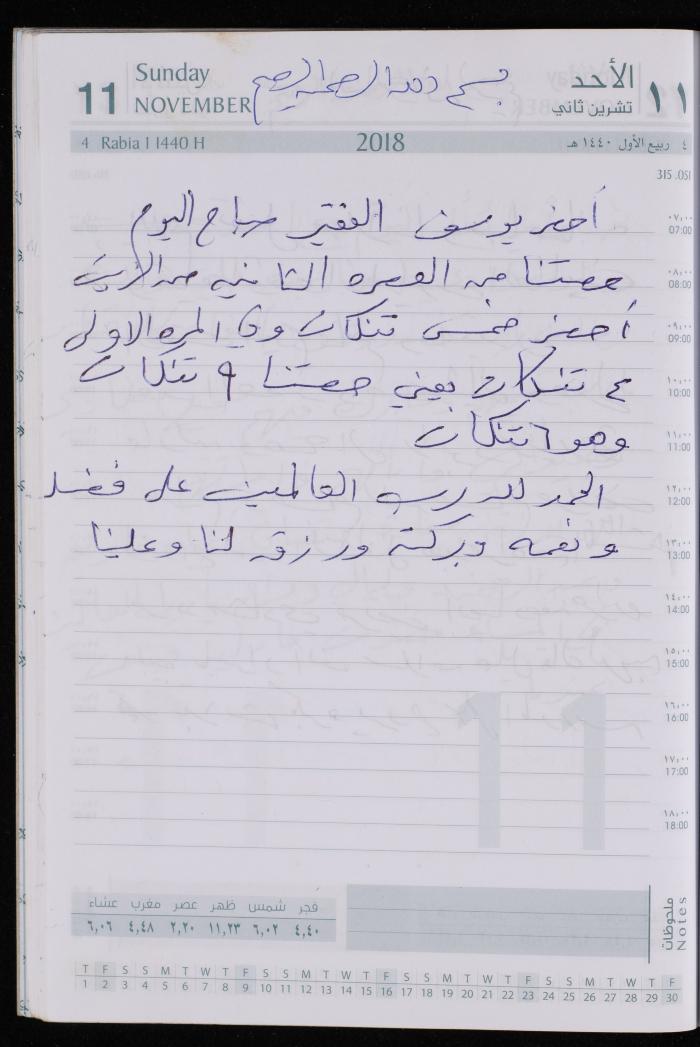 11 Sunday NOVEMBER بسم الله الرحمن الرحيم الأحد تشرين ثاني ١١
4 Rabia I 1440 H 2018 ٤ ربيع الأول ١٤٤٠ هـ
315 .051
أحضر يوسف الفقير صباح اليوم
٠٧,٠٠ 07:00
حصتنا من العصره الثانيه من الزيت
٠٨,٠٠ 08:00
أحضر خمس تنكات وفي المره الاولى
٠٩,٠٠ 09:00
٤ تنكات يعني حصتنا ٩ تنكات
١٠,٠٠ 10:00
وهو ٦ تنكات
١١,٠٠ 11:00
الحمد لله رب العالمين على فضله
١٢,٠٠ 12:00
ونعمه وبركته ورزقه لنا وعلينا
١٣,٠٠ 13:00
١٤,٠٠ 14:00
١٥,٠٠ 15:00
١٦,٠٠ 16:00
11
١٧,٠٠ 17:00
١٨,٠٠ 18:00
فجر شمس ظهر عصر مغرب عشاء
٤,٤٠ ٦,٠٢ ١١,٢٣ ٢,٢٠ ٤,٤٨ ٦,٠٦
ملاحظات Notes
T F S S M T W T F S S M T W T F S S M T W T F S S M T W T F
1 2 3 4 5 6 7 8 9 10 11 12 13 14 15 16 17 18 19 20 21 22 23 24 25 26 27 28 29 30